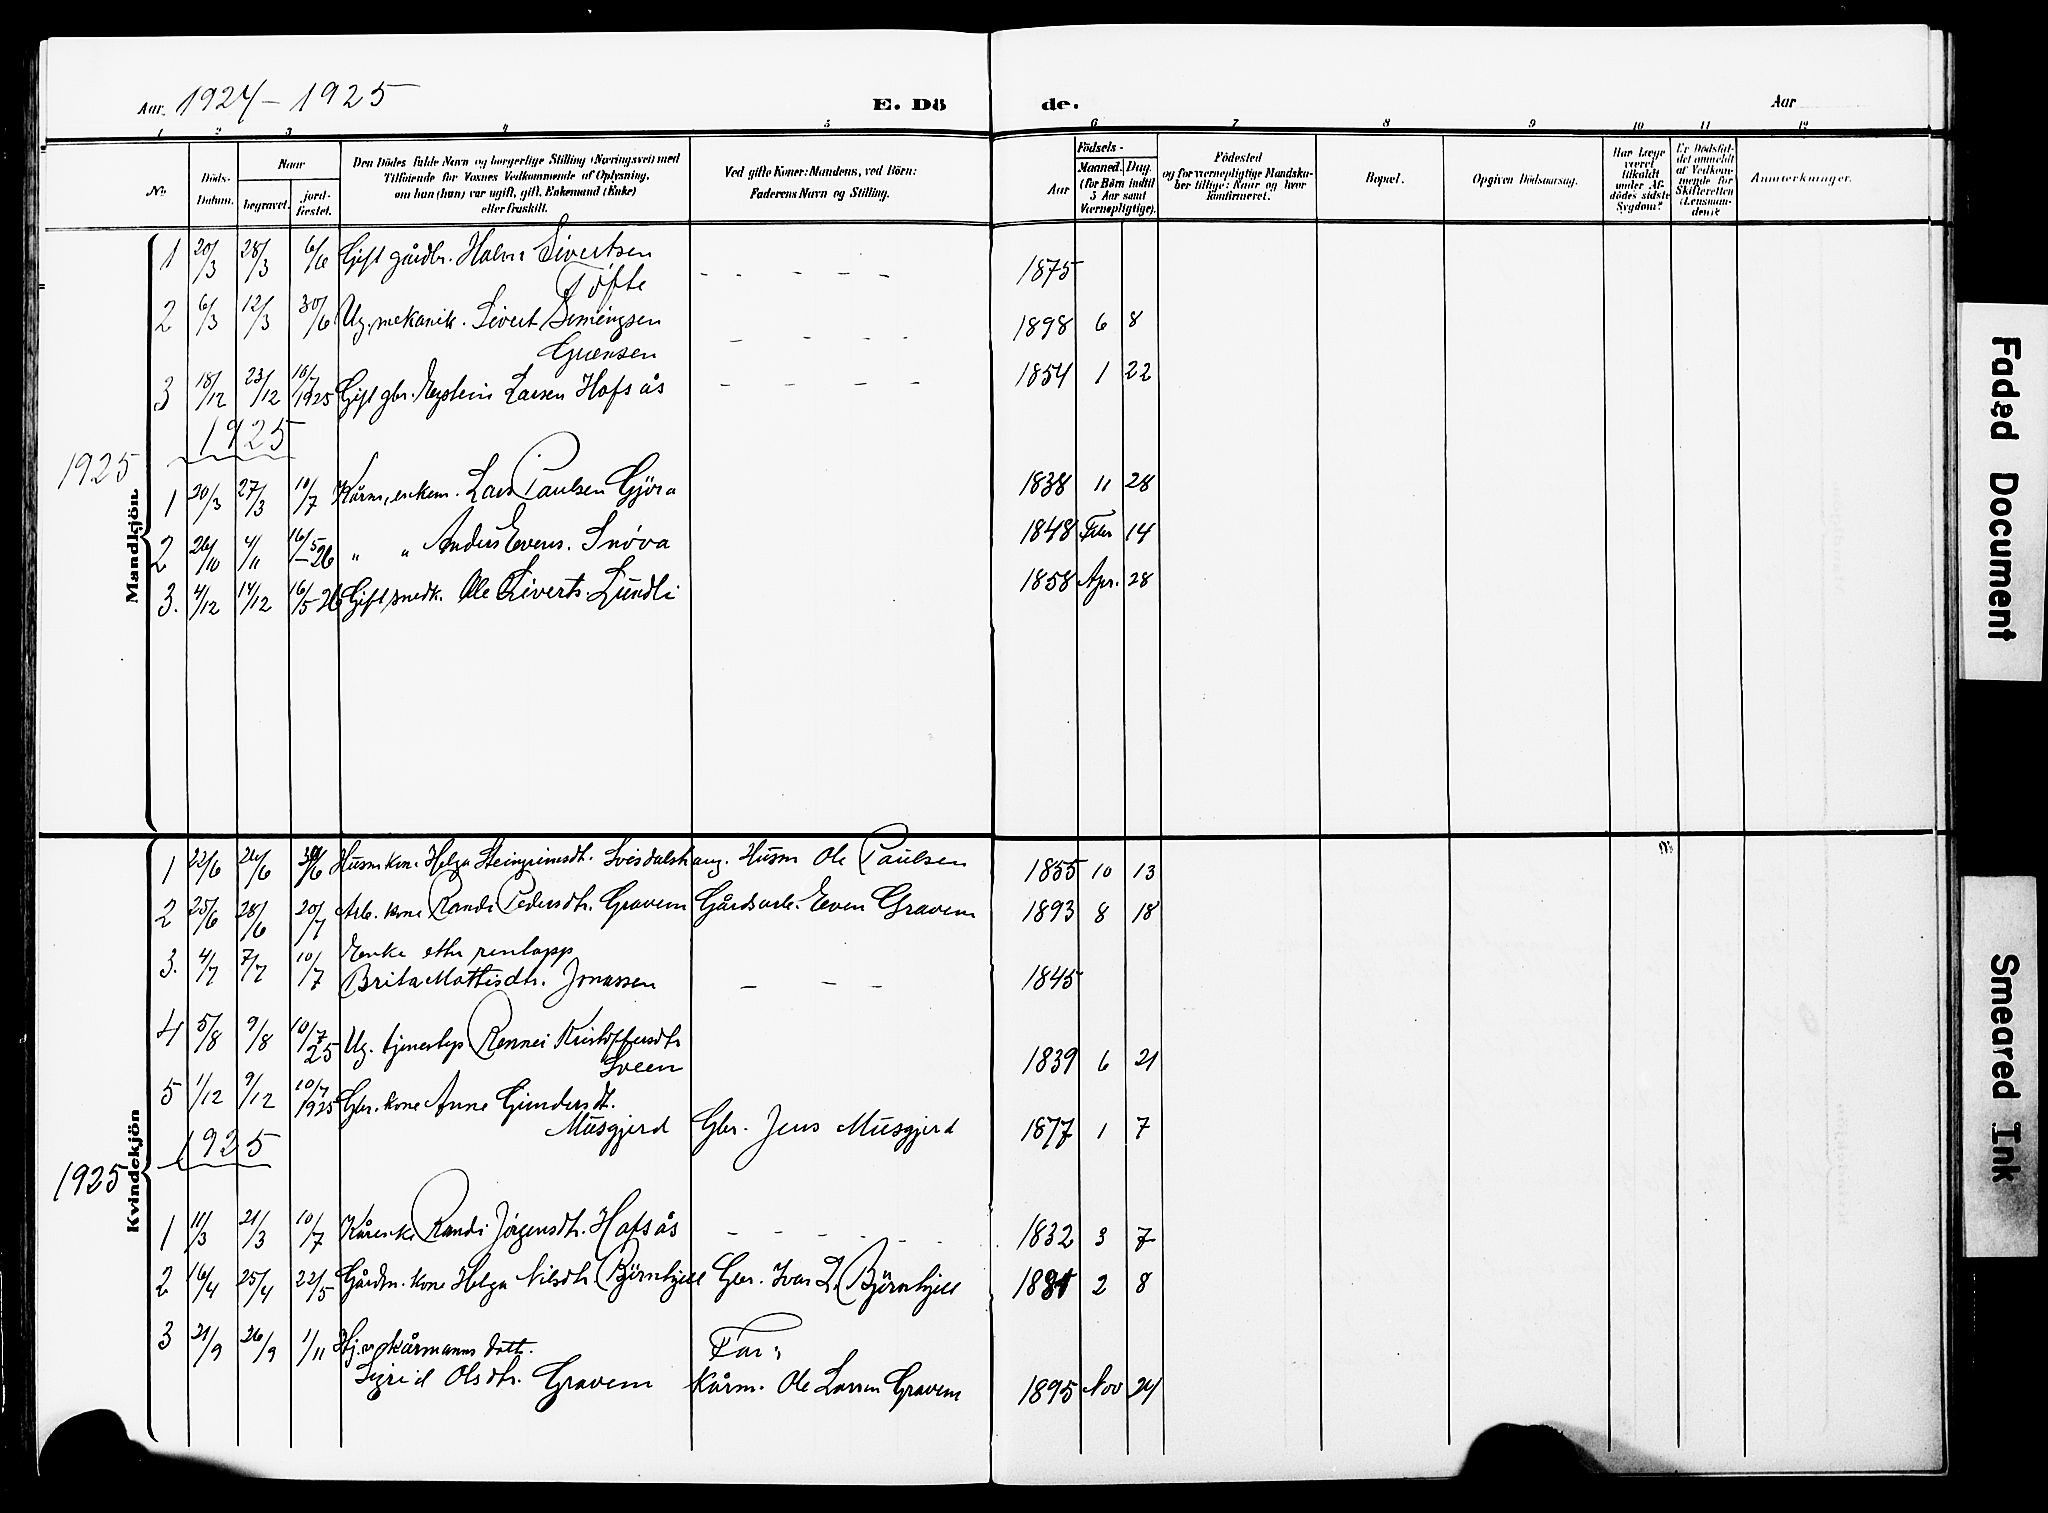 Aar. 1924 – 1925 E. Dö de. Aar
1 2 3 4 5 6 7 8 9 10 11 12
No. Döds-Datum. Naar begravet. jord-fæstet. Den Dödes fulde Navn og borgerlige Stilling (Næringsvei) med Tilföiende for Voxnes Vedkommende af Oplysning, om han (hun) var ugift, gift, Enkemand (Enke) eller fraskilt. Ved gifte Koner: Mandens, ved Börn: Faderens Navn og Stilling. Aar Födsels- Maaned. Dag. (for Börn indtil 5 Aar samt Værnepligtige). Födested og for værnepligtige Mandskaber tillige: Naar og hvor konfirmeret. Bopæl. Opgiven Dödsaarsag. Har Læge været tilkaldt under Afdödes sidste Sygdom? Er Dödsfaldet anmeldt af Vedkommende for Skifteretten (Lensmanden)? Anmærkninger.
Mandkjön
1 20/3 28/3 6/6 Gift gårdbr. Halvor Sivertsen – – – – – 1875
Tofte
2 6/3 12/3 30/6 Ug. mekanik. Sivert Simengsen – – – – 1898 6 8
Grensen
3 18/12 23/12 10/7 1925 Gift gbr. Eystein Larsen Hofsås – – – – 1854 1 22
1925
1925
1 20/3 27/3 10/7 Kårm, enkem. Lars Paulsen Gjöra 1838 11 28
2 26/10 4/11 16/5–26 " " Anders Evens. Snøva 1848 Febr 14
3. 4/12 14/12 16/5 26 Gift snedk. Ole Siverts. Lundli 1858 Apr. 28
Kvindekjön
1 22/6 26/6 30/6 Husm kone Helga Steingrimsdt. Svisdalshaug. Husm Ole Paulsen 1855 10 13
2 25/6 28/6 20/7 Arb. kone Randi Pedersdtr. Gravem Gårdsarb. Even Gravem 1893 8 18
3. 4/7 7/7 10/7 Enke etter renlapp
Brita Mattisdtr. Jonassen – – – 1845
4 5/8 9/8 10/7 25 Ug. tjenerlegd Rennei Kristoffersdtr
Sveen 1839 6 21
5 1/12 9/12 10/7 1925 Gbr. kone Anne Gundersdt.
Musgjerd Gbr. Jens Musgjerd 1877 1 7
1925
1925
1 11/3 21/3 10/7 Kårenke Randi Jörgensdtr. Hofsås – – – – – – 1832 3 7
2 16/4 25/4 22/5 Gårdm. kone Helga Nilsdtr. Björnhjell Gbr. Ivar L. Björnhjell 1881 2 8
3 21/9 26/9 1/11 Hj.v. kårmanns dott. Far:
Sigrid Olsdtr. Gravem Kårm. Ole Larsen Gravem 1895 Nov 24
Faded Document
Smeared Ink